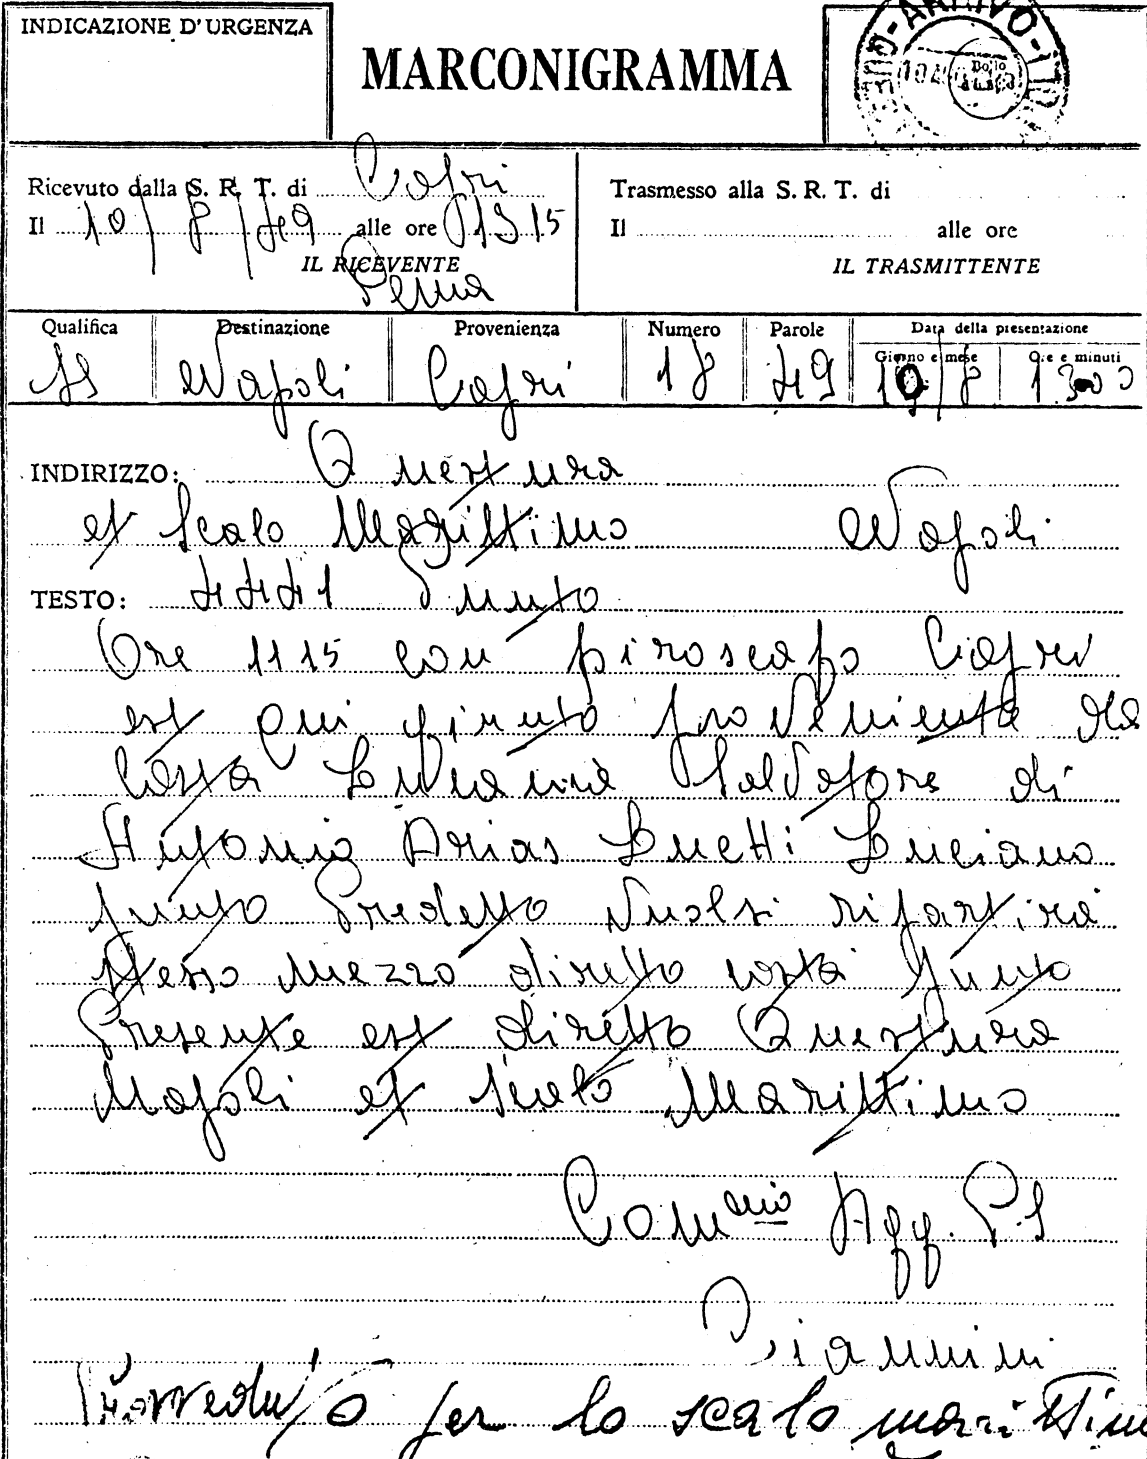 INDICAZIONE D'URGENZA
MARCONIGRAMMA
ARRIVO
Bollo
Ricevuto dalla S. R. T. di Capri
Il 10/8/49 alle ore 1315
IL RICEVENTE
Perna
Trasmesso alla S. R. T. di
Il alle ore
IL TRASMITTENTE
Qualifica Destinazione Provenienza Numero Parole Data della presentazione
Giorno e mese Ore e minuti
SS Napoli Capri 18 49 10/8 1300
INDIRIZZO: Questura
et Scalo Marittimo Napoli
TESTO: 4441 Punto
Ore 1115 con piroscafo Capri
est qui giunto proveniente da
costà Lucania Salvatore di
Antonio Arias Lucky Luciano
punto Predetto vuolsi ripartirà
stesso mezzo diretto costà punto
Presente est diretto Questura
Napoli et Scalo Marittimo
Com.rio Agg. P.S
Giannini
Provveduto per lo scalo marittimo